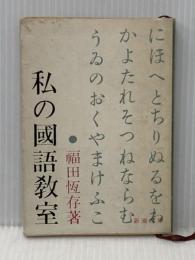 にほへとちりぬるをわ
かよたれそつねならむ
うゐのおくやまけふこ
福田恆存著
私の國語敎室